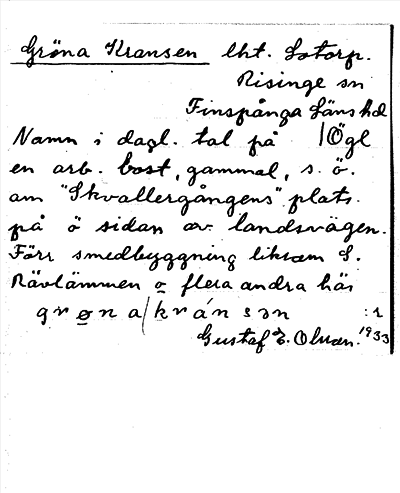 Gröna Kransen lht. Lotorp.
Risinge sn
Finspånga Läns hd
Namn i dagl. tal på /Ögl
en arb. bost, gammal, s. ö.
om "Skvallergångens" plats.
på ö sidan av landsvägen.
Förr smedbyggning liksom S.
Rävlämmen o flera andra här
grøna/kránsən :1
Gustaf E. Olsson. 1933